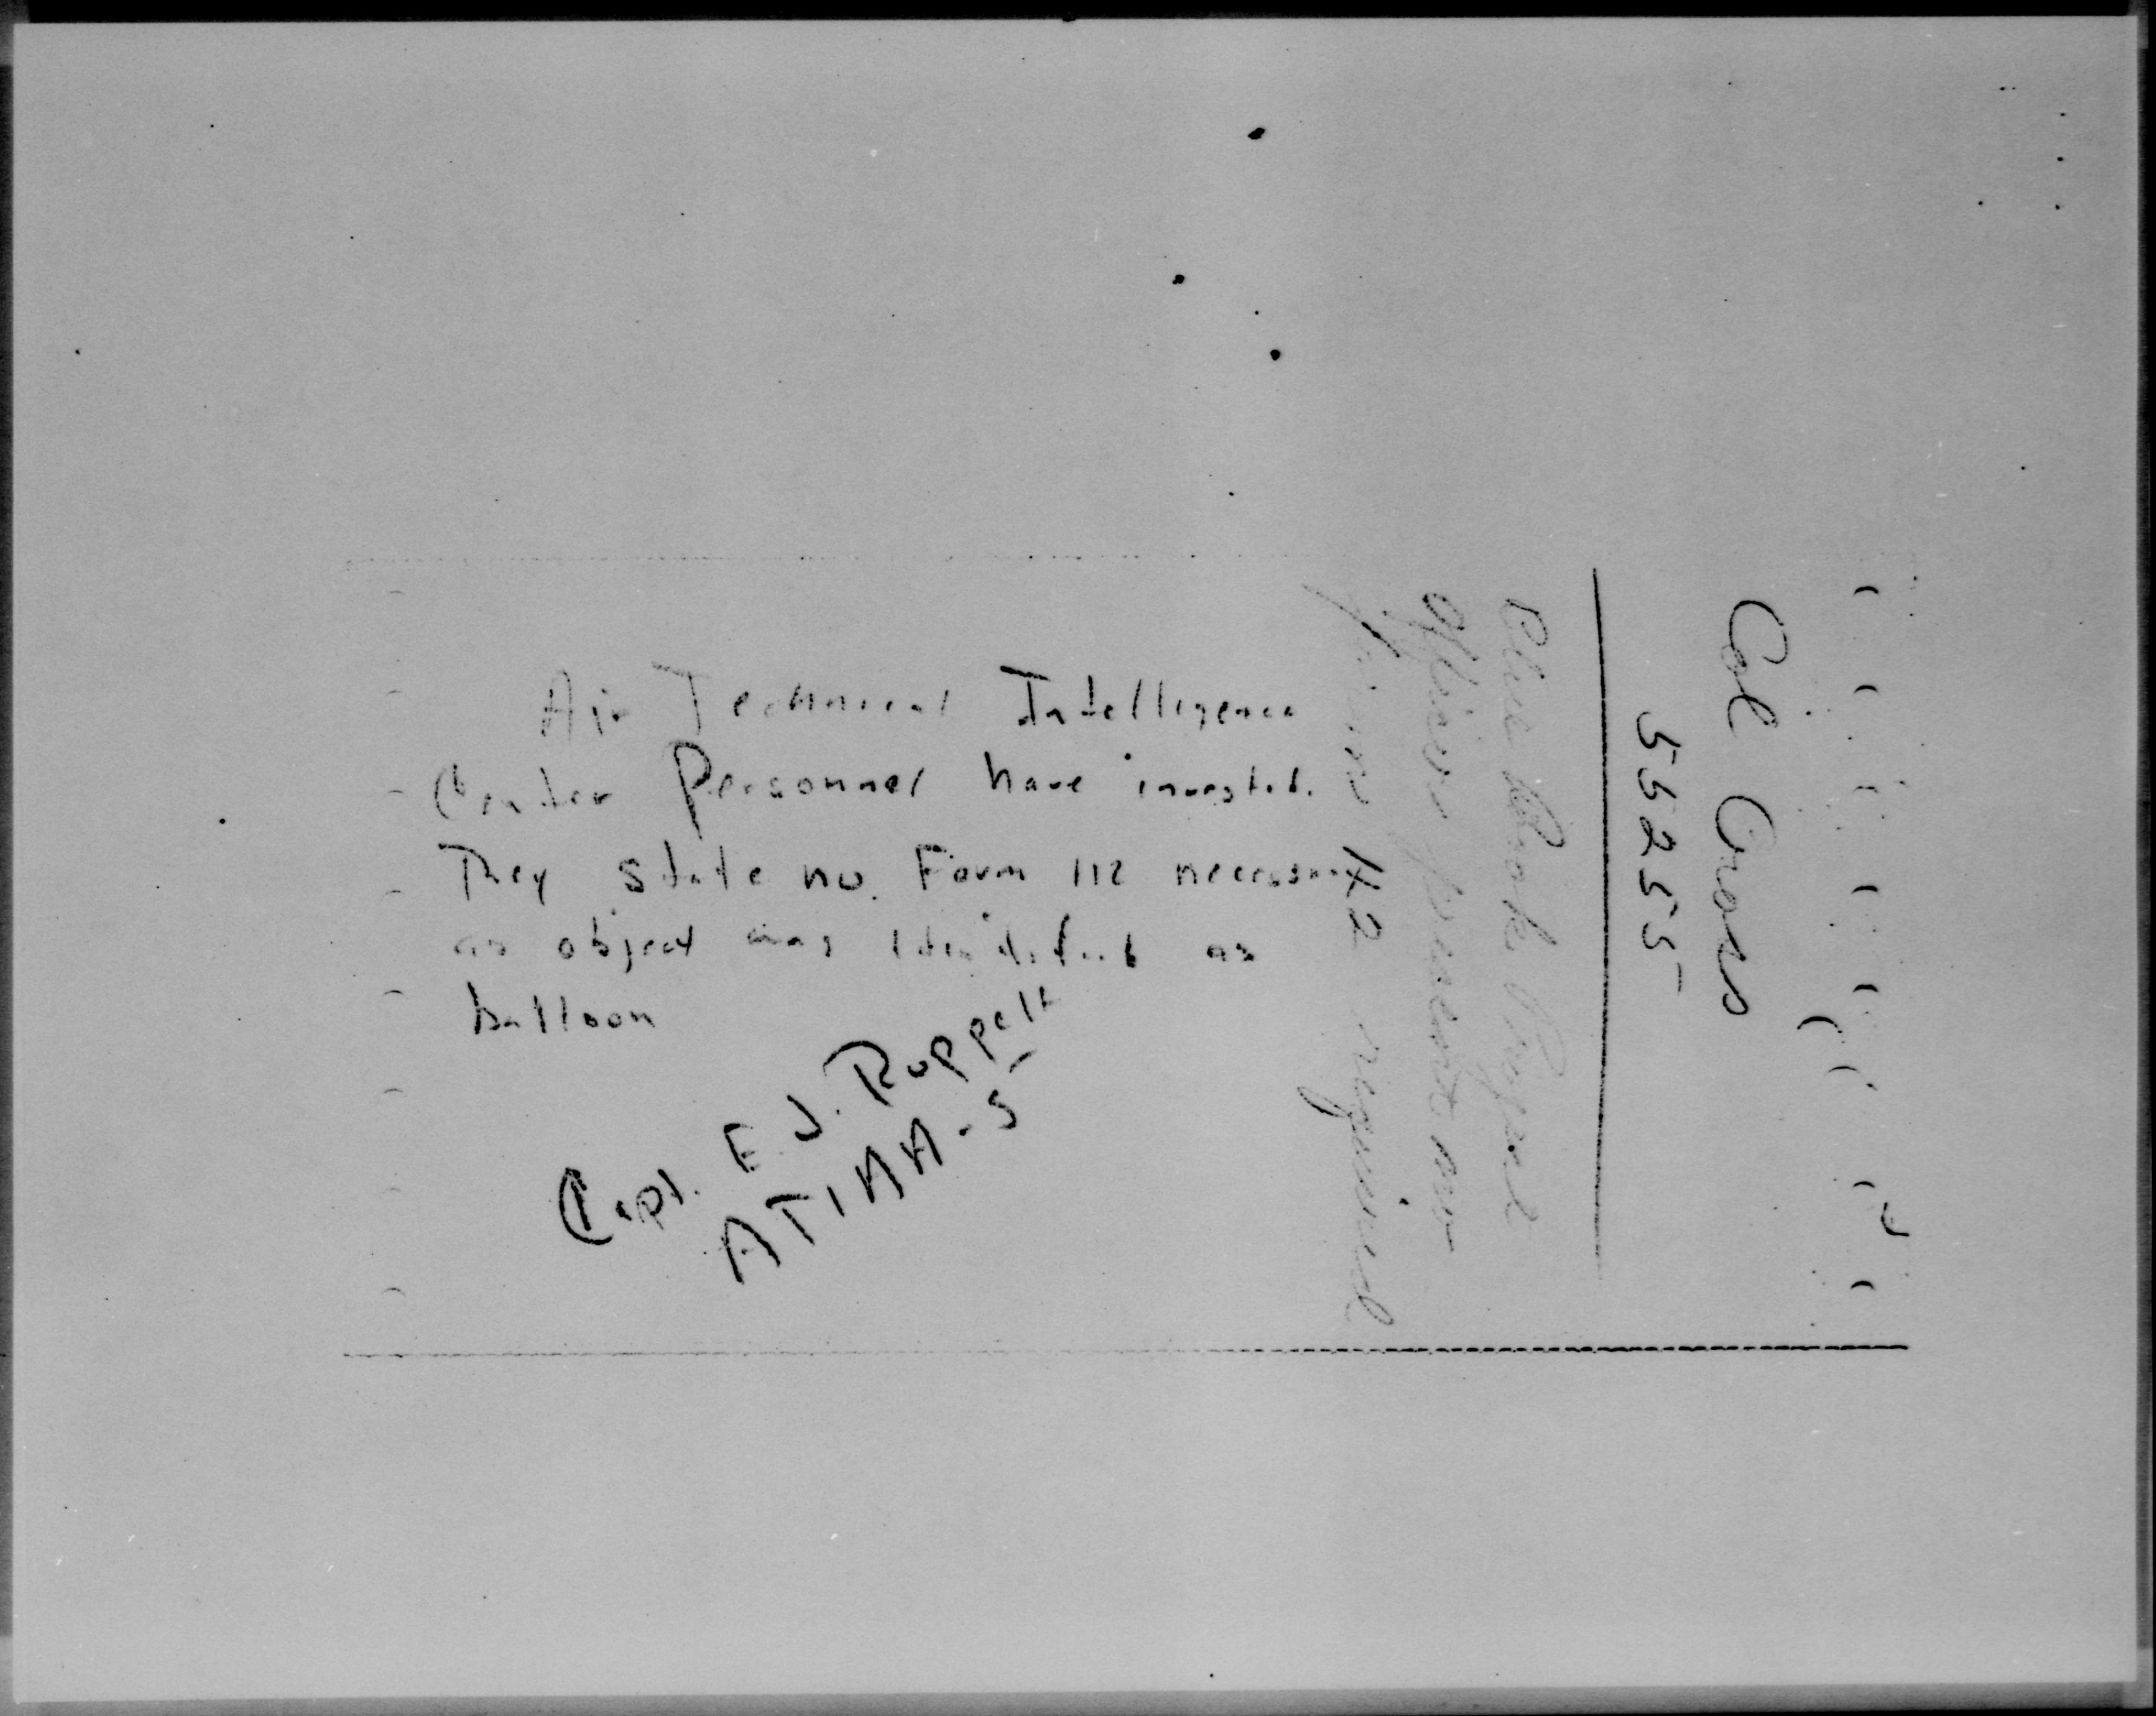 Air Technical Intelligence
Center Personnel have investid.
They state no. Form 112 necessary
as object was identified as
balloon
Capt. E. J. Ruppelt
ATIAA-5
Col Cross
55255
Blue Book Project
Officer present no
form 112 required